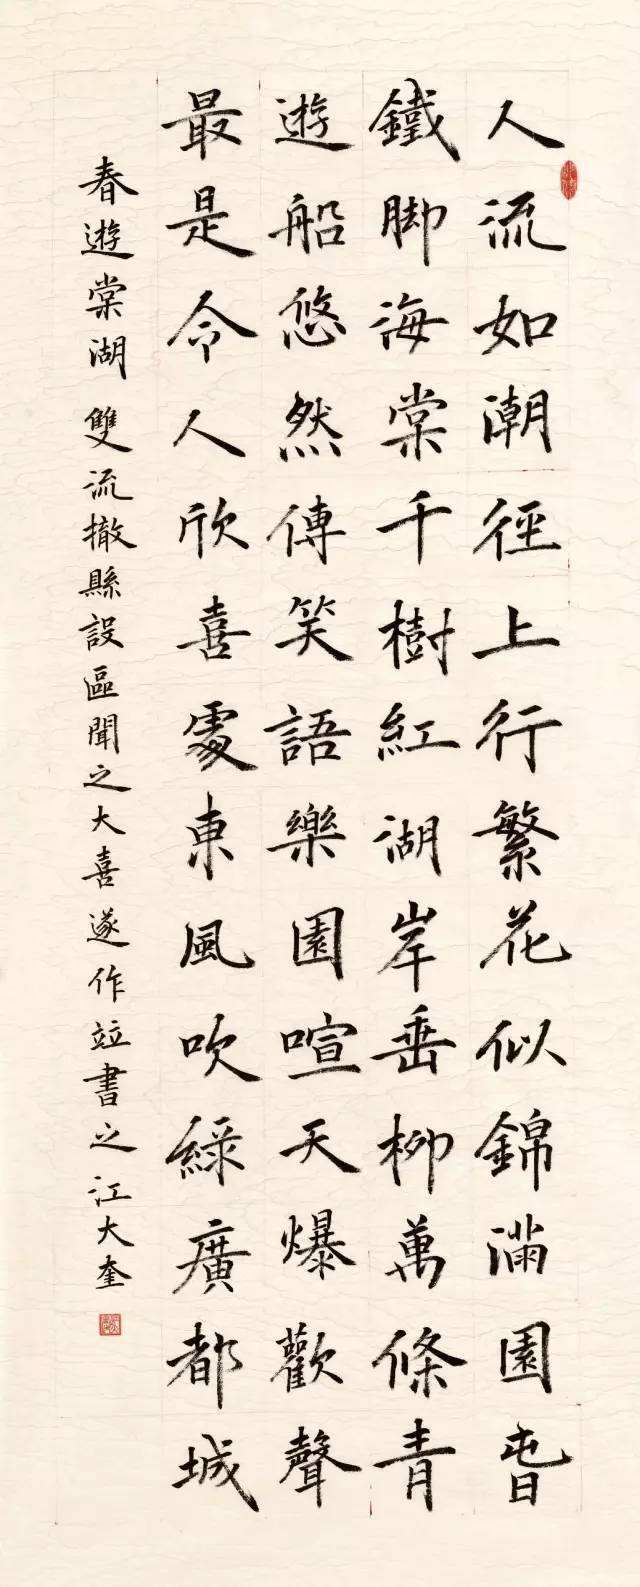 人流如潮徑上行繁花似錦滿園旾
鐵脚海棠千樹紅湖岸垂柳萬條青
遊船悠然傳笑語樂園喧天爆歡聲
最是令人欣喜處東風吹綠廣都城
春遊棠湖 雙流撤縣設區聞之大喜遂作竝書之江大奎